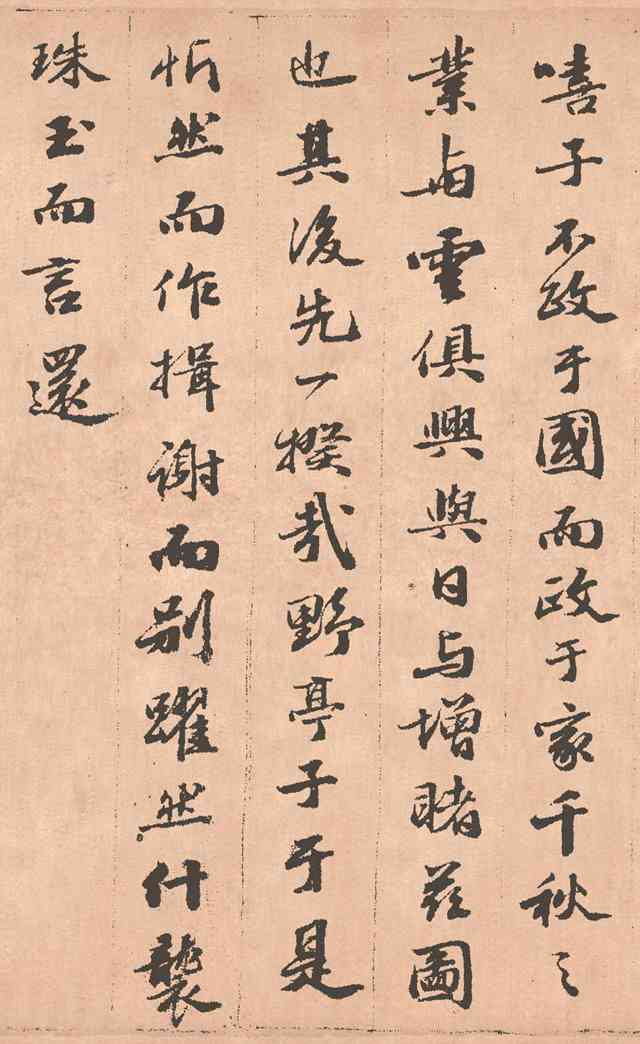 嘻子不政于國而政于家千秋之
業与雲俱興與日与增睹茲圖
也其後先一揆哉野亭子于是
忻然而作揖謝而别躍然什襲
珠玉而言還